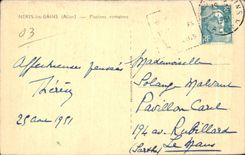 NÉRIS-les-BAINS (Allier) — Piscines romaines
03
Affectueuses pensées
Thérèse
25 aout 1951
Mademoiselle
Solange
Pavillon Carel
194 av. Rubillard
Le Mans
(Sarthe)